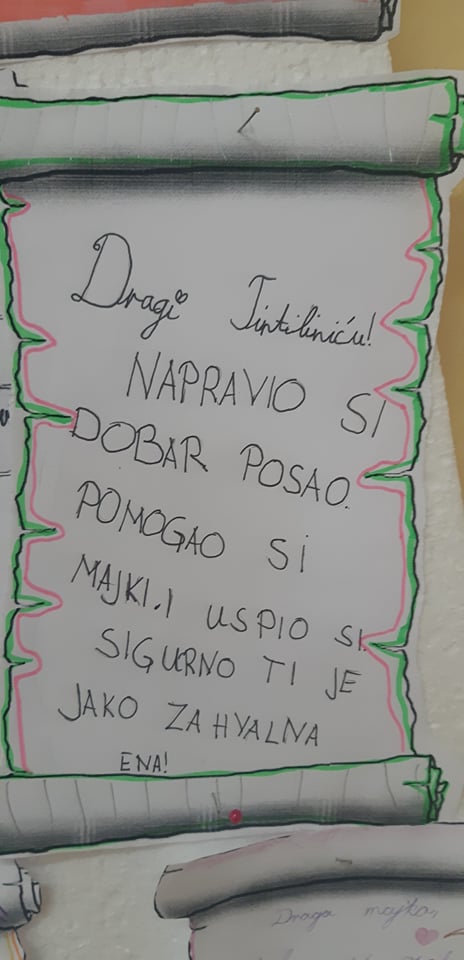 Dragi Tintiliniću!
NAPRAVIO SI
DOBAR POSAO.
POMOGAO SI
MAJKI.I USPIO SI.
SIGURNO TI JE
JAKO ZAHVALNA
ENA!
Draga majko,